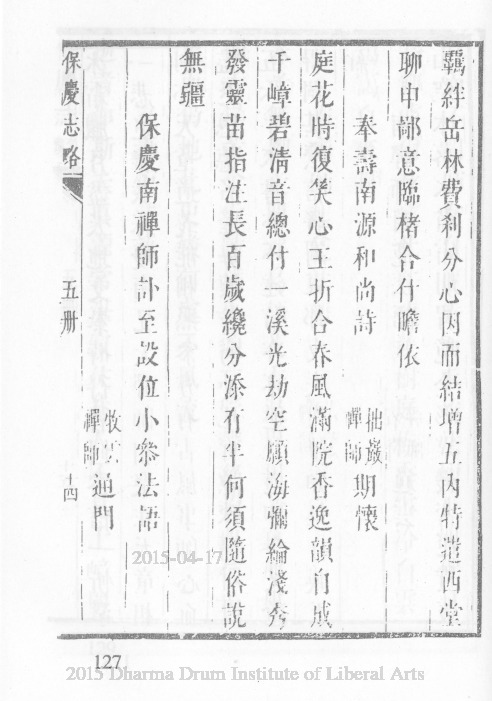 羈絆岳林費剎分心因而結增五內特遣西堂
聊申鄙意臨楮合什瞻依
奉壽南源和尚詩 拙巖禪師期懷
庭花時復笑心王折合春風滿院香逸韻自成
千嶂碧清音總付一溪光劫空願海彌綸淺秀
發靈苗指注長百歲纔分添有半何須隨俗說
無疆
保慶南禪師訃至設位小參法語 牧雲禪師通門
保慶志略 五册 十四
2015-04-17
127
2015 Dharma Drum Institute of Liberal Arts